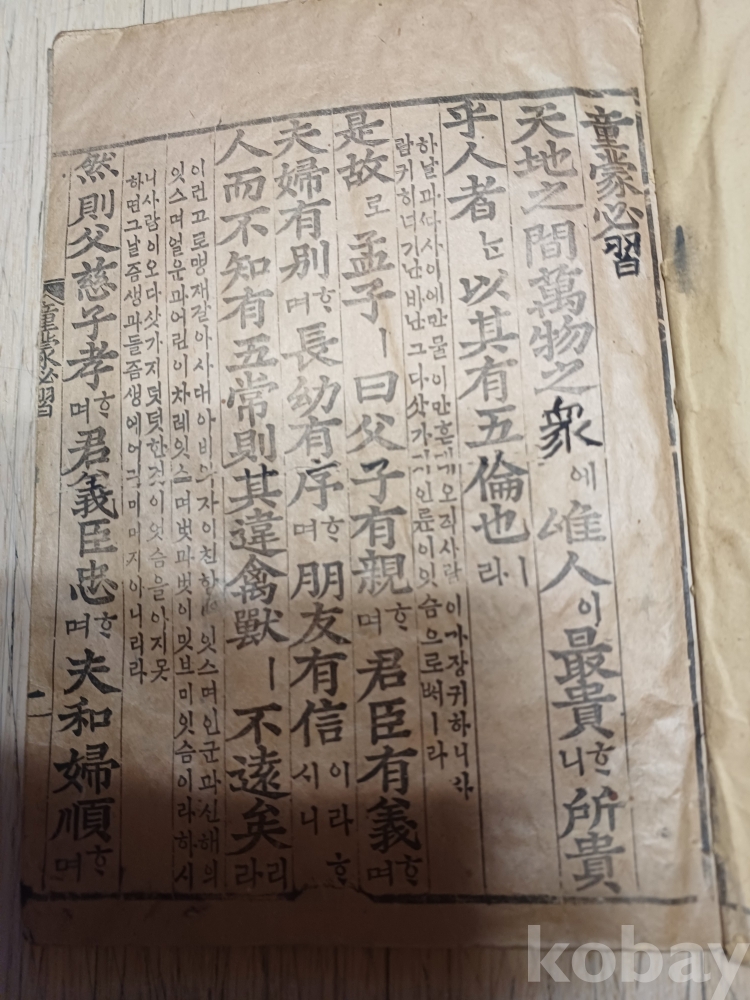 童蒙必習
天地之間萬物之衆에唯人이最貴ᄒᆞ니所貴
乎人者눈以其有五倫也ㅣ라
하날과ᄯᅡ사이에만물이만흔대오직사람이가장귀하니사
람귀히너기난바난그다삿가지인륜이잇슴으로써ㅣ라
是故로孟子ㅣ曰父子有親ᄒᆞ며君臣有義ᄒᆞ며
夫婦有別ᄒᆞ며長幼有序ᄒᆞ며朋友有信이라ᄒᆞ시니
人而不知有五常則其違禽獸ㅣ不遠矣리라
이런고로맹재갈아사대아비와자이친함이잇스며인군과신해의
잇스며얼운과어린이차례잇스며벗과벗이밋브미잇슴이라하시
니사람이오다삿가지덧덧한것이잇슴을아지못
하면그날즘생과들즘생에어긔미머지아니리라
然則父慈子孝ᄒᆞ며君義臣忠ᄒᆞ며夫和婦順ᄒᆞ며
童蒙必習 一
kobay